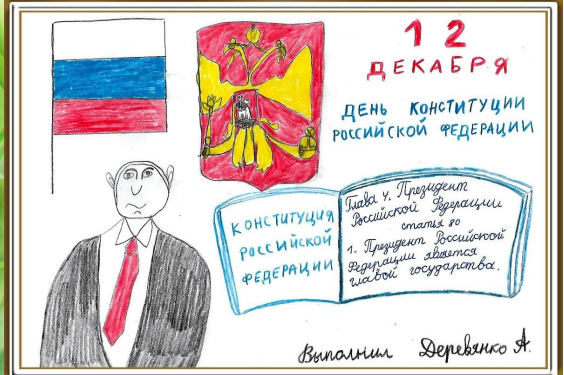 12
ДЕКАБРЯ
ДЕНЬ КОНСТИТУЦИИ
РОССИЙСКОЙ ФЕДЕРАЦИИ
КОНСТИТУЦИЯ
РОССИЙСКОЙ
ФЕДЕРАЦИИ
Глава 4. Президент
Российской Федерации
статья 80
1. Президент Российской
Федерации является
главой государства.
Выполнил Деревянко А.